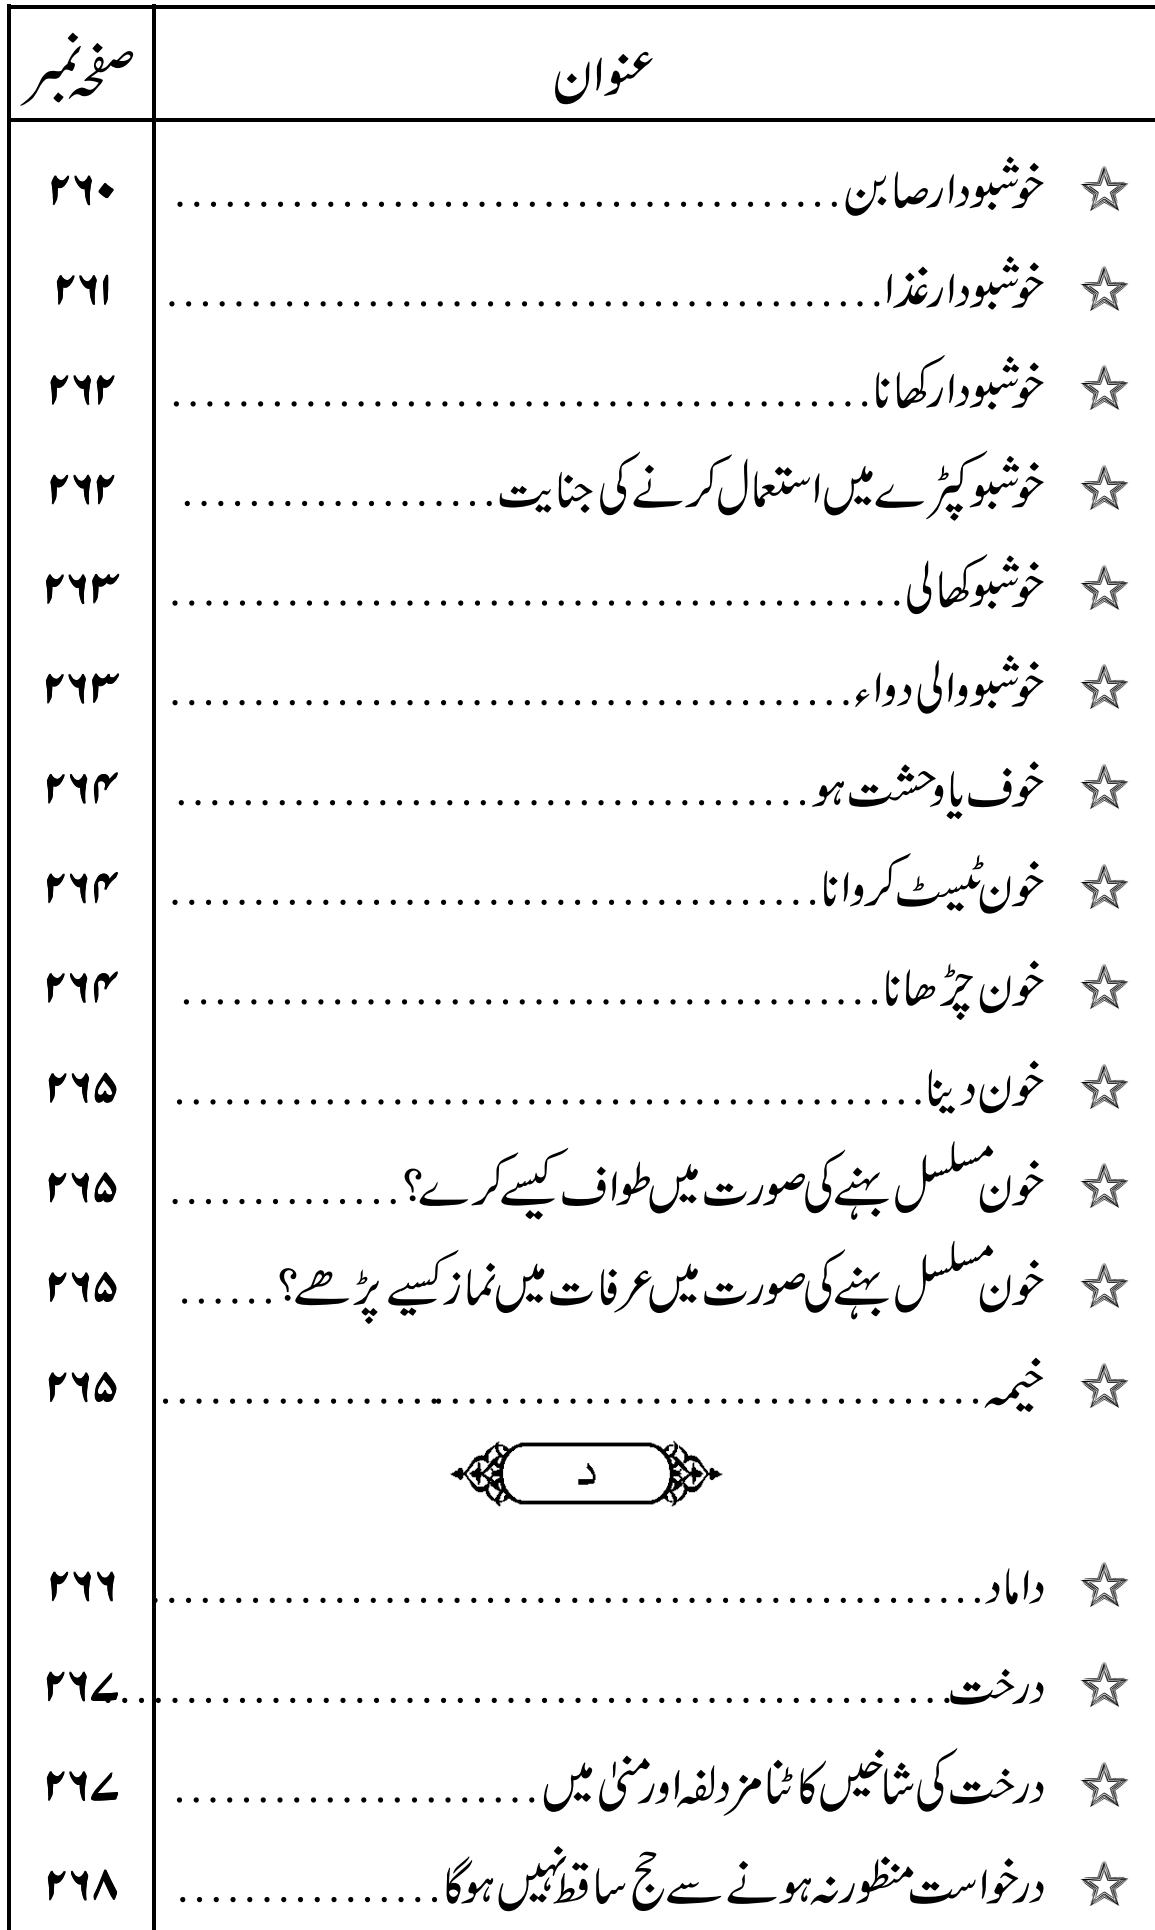 عنوان صفحہ نمبر
☆ خوشبودار صابن ........................................ ۲۶۰
☆ خوشبودار غذا ........................................ ۲۶۱
☆ خوشبودار کھانا ........................................ ۲۶۲
☆ خوشبو کپڑے میں استعمال کرنے کی جنایت ................... ۲۶۲
☆ خوشبو کھالی ........................................ ۲۶۳
☆ خوشبو والی دواء ........................................ ۲۶۳
☆ خوف یا وحشت ہو ........................................ ۲۶۴
☆ خون ٹیسٹ کروانا ........................................ ۲۶۴
☆ خون چڑھانا ........................................ ۲۶۴
☆ خون دینا ........................................ ۲۶۵
☆ خون مسلسل بہنے کی صورت میں طواف کیسے کرے؟ .............. ۲۶۵
☆ خون مسلسل بہنے کی صورت میں عرفات میں نماز کیسے پڑھے؟ ...... ۲۶۵
☆ خیمہ ........................................ ۲۶۵
د
☆ داماد ........................................ ۲۶۶
☆ درخت ........................................ ۲۶۷
☆ درخت کی شاخیں کاٹنا مزدلفہ اور منیٰ میں ...................... ۲۶۷
☆ درخواست منظور نہ ہونے سے حج ساقط نہیں ہوگا ................ ۲۶۸